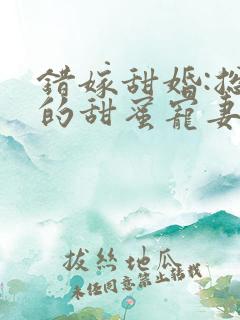 錯嫁甜婚:
的甜蜜寵妻
拔絲地瓜
未經同意禁止轉載